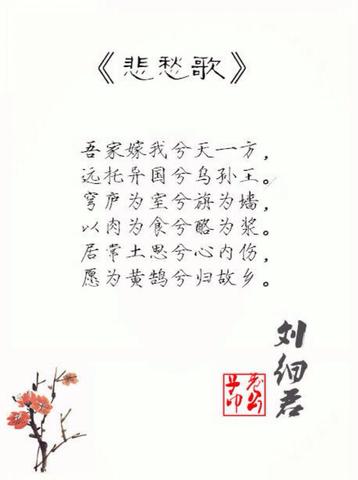 《悲愁歌》
吾家嫁我兮天一方，
远托异国兮乌孙王。
穹庐为室兮旗为墙，
以肉为食兮酪为浆。
居常土思兮心内伤，
愿为黄鹄兮归故乡。
刘细君